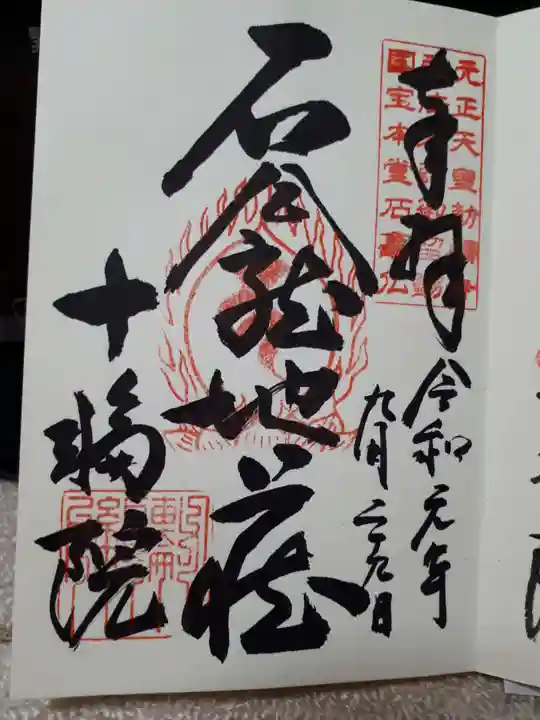 奉拝
令和元年
九月二九日
石龕地蔵
十輪院
元正天皇勅願
国宝本堂石龕仏